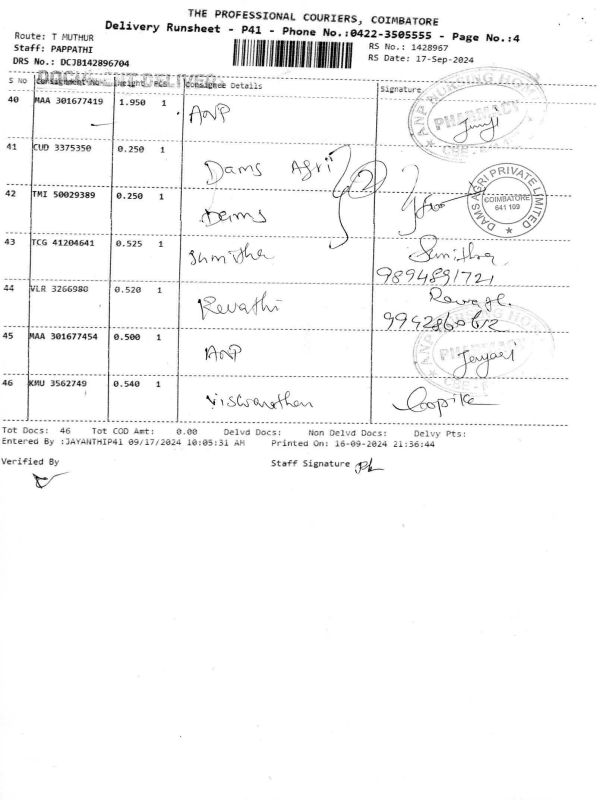 THE PROFESSIONAL COURIERS, COIMBATORE
Delivery Runsheet - P41 - Phone No.:0422-3505555 - Page No.:4
Route: T MUTHUR
RS No.: 1428967
Staff: PAPPATHI
RS Date: 17-Sep-2024
DRS No.: DCJB142896704
S No Consignment No Weight Pcs Consignee Details Signature
40 MAA 301677419 1.950 1 ANP
ANP NURSING HOME PHARMACY
41 CUD 3375350 0.250 1 Dams Agri 2
42 TMI 50029389 0.250 1 Dams
DAMS AGRI PRIVATE LIMITED COIMBATORE 641 109
43 TCG 41204641 0.525 1 Sumitha Sumitha
9894891721
44 VLR 3266980 0.520 1 Revathi
9942860612
45 MAA 301677454 0.500 1 ANP
ANP NURSING HOME PHARMACY
46 KMU 3562749 0.540 1 Viswanathan Gopika
Tot Docs: 46 Tot COD Amt: 0.00 Delvd Docs: Non Delvd Docs: Delvy Pts:
Entered By :JAYANTHIP41 09/17/2024 10:05:31 AM Printed On: 16-09-2024 21:36:44
Verified By Staff Signature